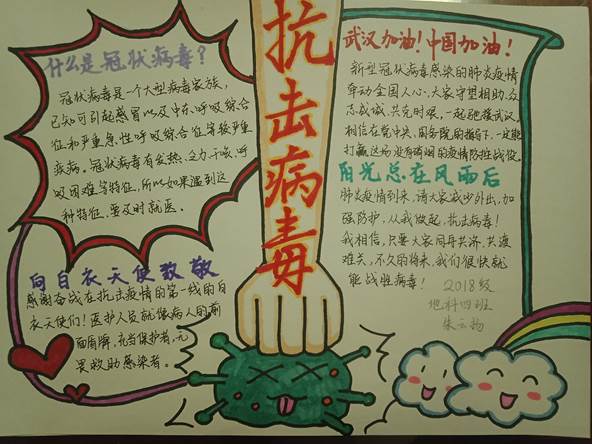 什么是冠状病毒？
冠状病毒是一个大型病毒家族，
已知可引起感冒以及中东呼吸综合
征和严重急性呼吸综合征等较严重
疾病。冠状病毒有发热、乏力、干咳、呼
吸困难等特征，所以如果遇到这
种特征，要及时就医。
向白衣天使致敬
感谢奋战在抗击疫情的第一线的白
衣天使们！医护人员就像病人的前
面盾牌，充当保护者，无
畏救助感染者。
抗击病毒
武汉加油！中国加油！
新型冠状病毒感染的肺炎疫情
牵动全国人心，大家守望相助、众
志成城、共克时艰，一起驰援武汉。
相信在党中央、国务院的指导下，一定能
打赢这场没有硝烟的疫情防控战役。
阳光总在风雨后
肺炎疫情到来，请大家减少外出，加
强防护，从我做起，抗击病毒！
我相信，只要大家同舟共济，共渡
难关，不久的将来，我们很快就
能战胜病毒！
2018级
地科四班